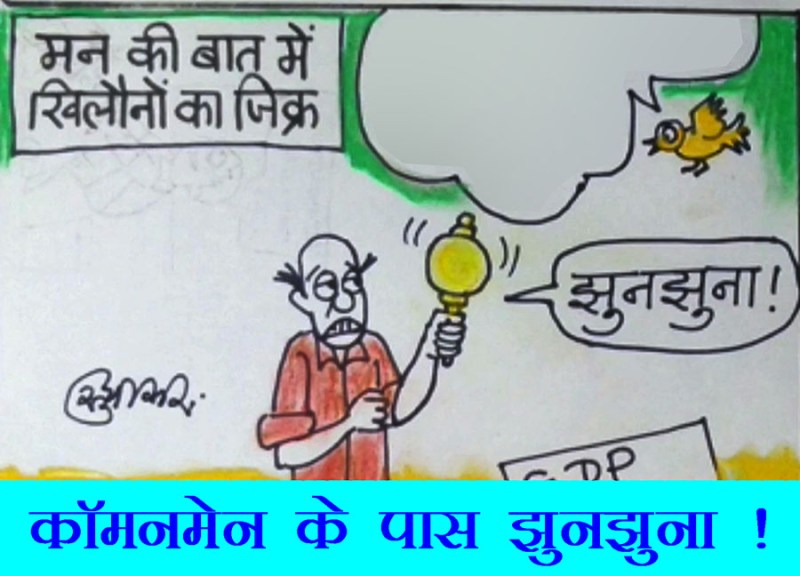 मन की बात में
खिलौनों का जिक्र
झुनझुना!
GDP
कॉमनमेन के पास झुनझुना !